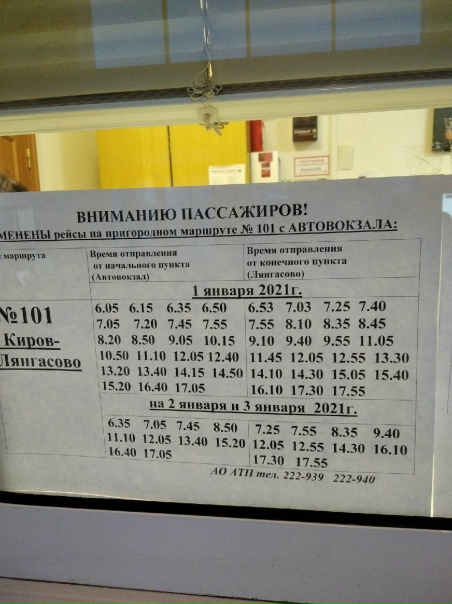 ВНИМАНИЮ ПАССАЖИРОВ!
МЕНЕНЫ рейсы на пригородном маршруте № 101 с АВТОВОКЗАЛА:
маршрута
Время отправления
от начального пункта
(Автовокзал)
Время отправления
от конечного пункта
(Лянгасово)
№101
Киров-
Лянгасово
1 января 2021г.
6.05 6.15 6.35 6.50 6.53 7.03 7.25 7.40
7.05 7.20 7.45 7.55 7.55 8.10 8.35 8.45
8.20 8.50 9.05 10.15 9.10 9.40 9.55 11.05
10.50 11.10 12.05 12.40 11.45 12.05 12.55 13.30
13.20 13.40 14.15 14.50 14.10 14.30 15.05 15.40
15.20 16.40 17.05 16.10 17.30 17.55
на 2 января и 3 января 2021г.
6.35 7.05 7.45 8.50 7.25 7.55 8.35 9.40
11.10 12.05 13.40 15.20 12.05 12.55 14.30 16.10
16.40 17.05 17.30 17.55
АО АТП тел. 222-939 222-940